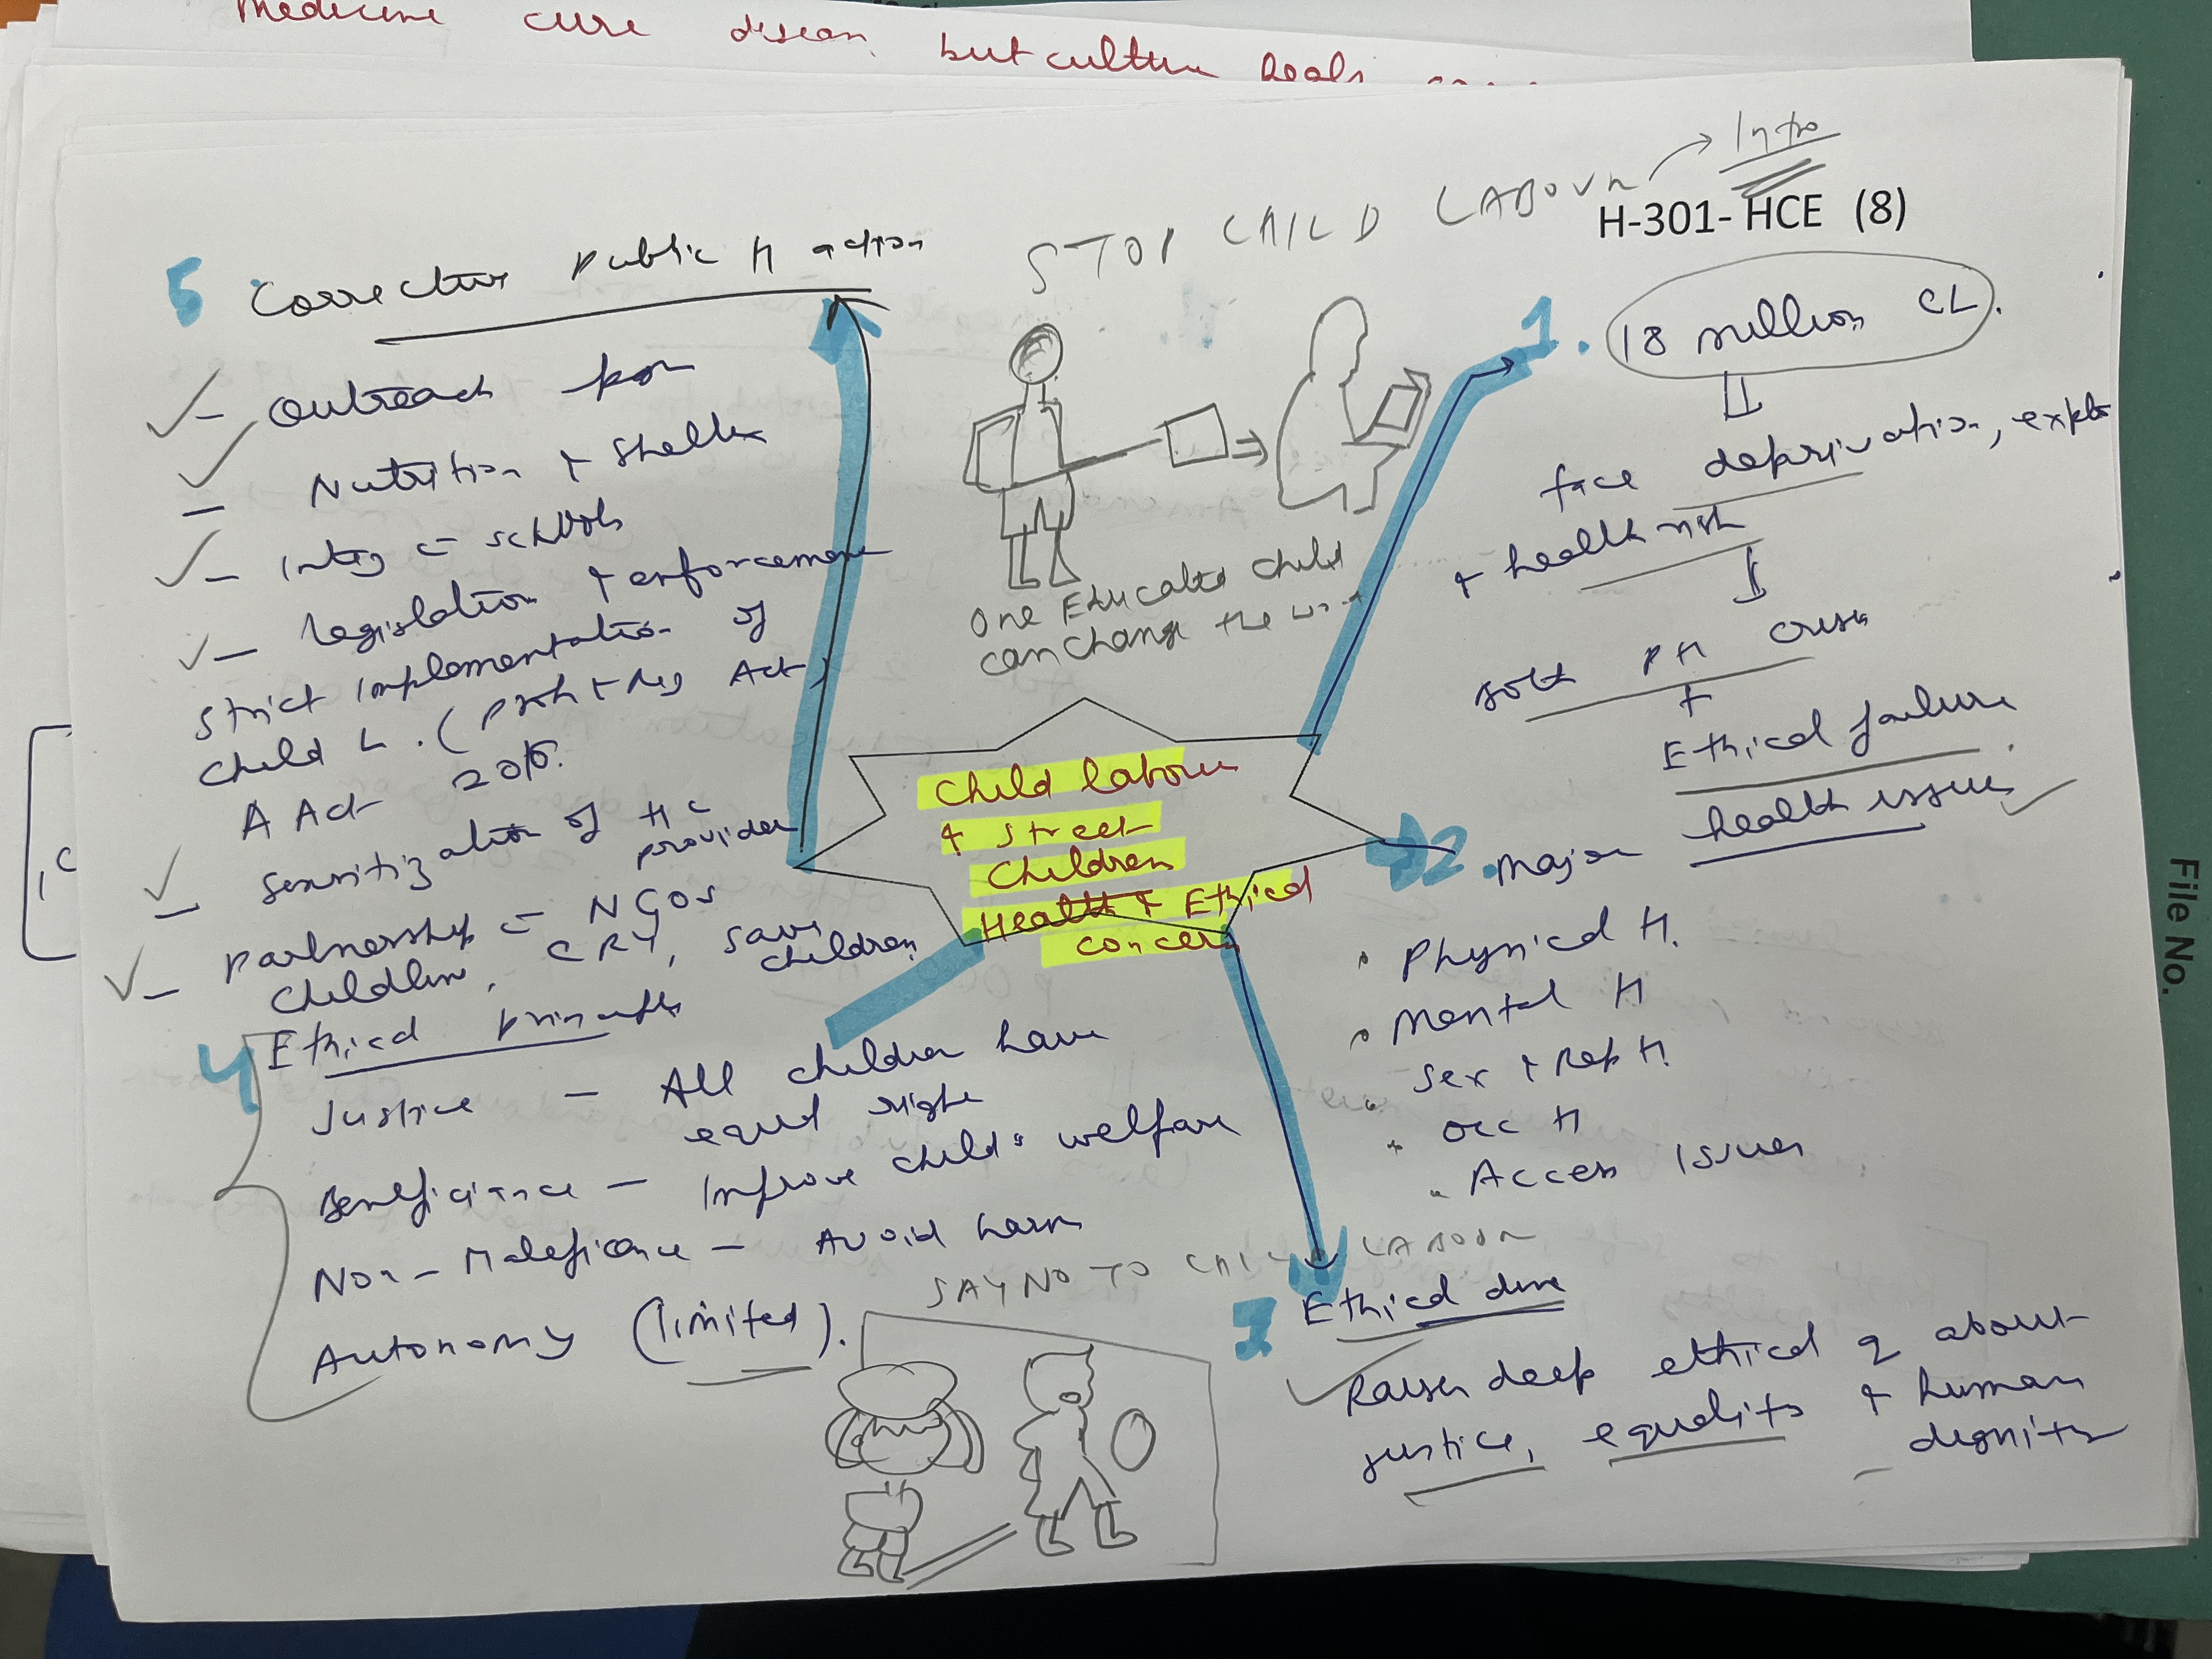 Medicine cure disean but culture heals
STOP CHILD LABOUR → Intro
H-301- HCE (8)
1. 18 million CL.
face deprivation, explo
+ health risk
both PH crisis
+
Ethical failure
2. Major health issues
Physical H.
Mental H
Sex + Rep H.
Occ H
Access Issues
3. Ethical dime
Raises deep ethical q about
justice, equality + human
dignity
4 Ethical principles
Justice — All children have
equal right
Beneficiance — Improve child's welfare
Non-Maleficance — Avoid harm
Autonomy (limited).
5 Corrective Public H action
- Outreach pgm
- Nutrition + Shelter
- Integ c schools
- legislation + enforcement
Strict implementation of
Child L. (Proh + Reg Act)
A Act 2016.
- Sensitization of HC
provider
- Partnership c NGOs
Childline, CRY, Save
children
One Educated child
can change the
Child labour
+ Street
Children
Health + Ethical
concern
SAY NO TO CHILD LABOUR
File No.